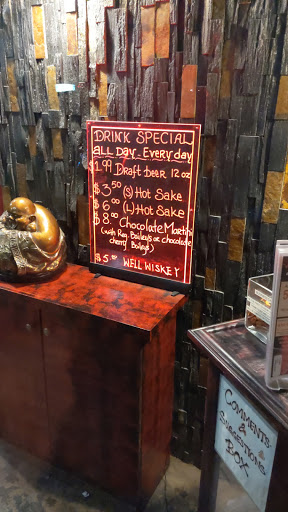 DRINK SPECIAL
ALL DAY Everyday
1.99 Draft beer 12 oz
$3.50 (S) Hot Sake
$6.00 (L) Hot Sake
$8.00 Chocolate Martini
(with Reg. Baileys or chocolate
cherry Baileys)
$5.00 WELL WISKEY
COMMENTS
&
SUGGESTIONS
BOX